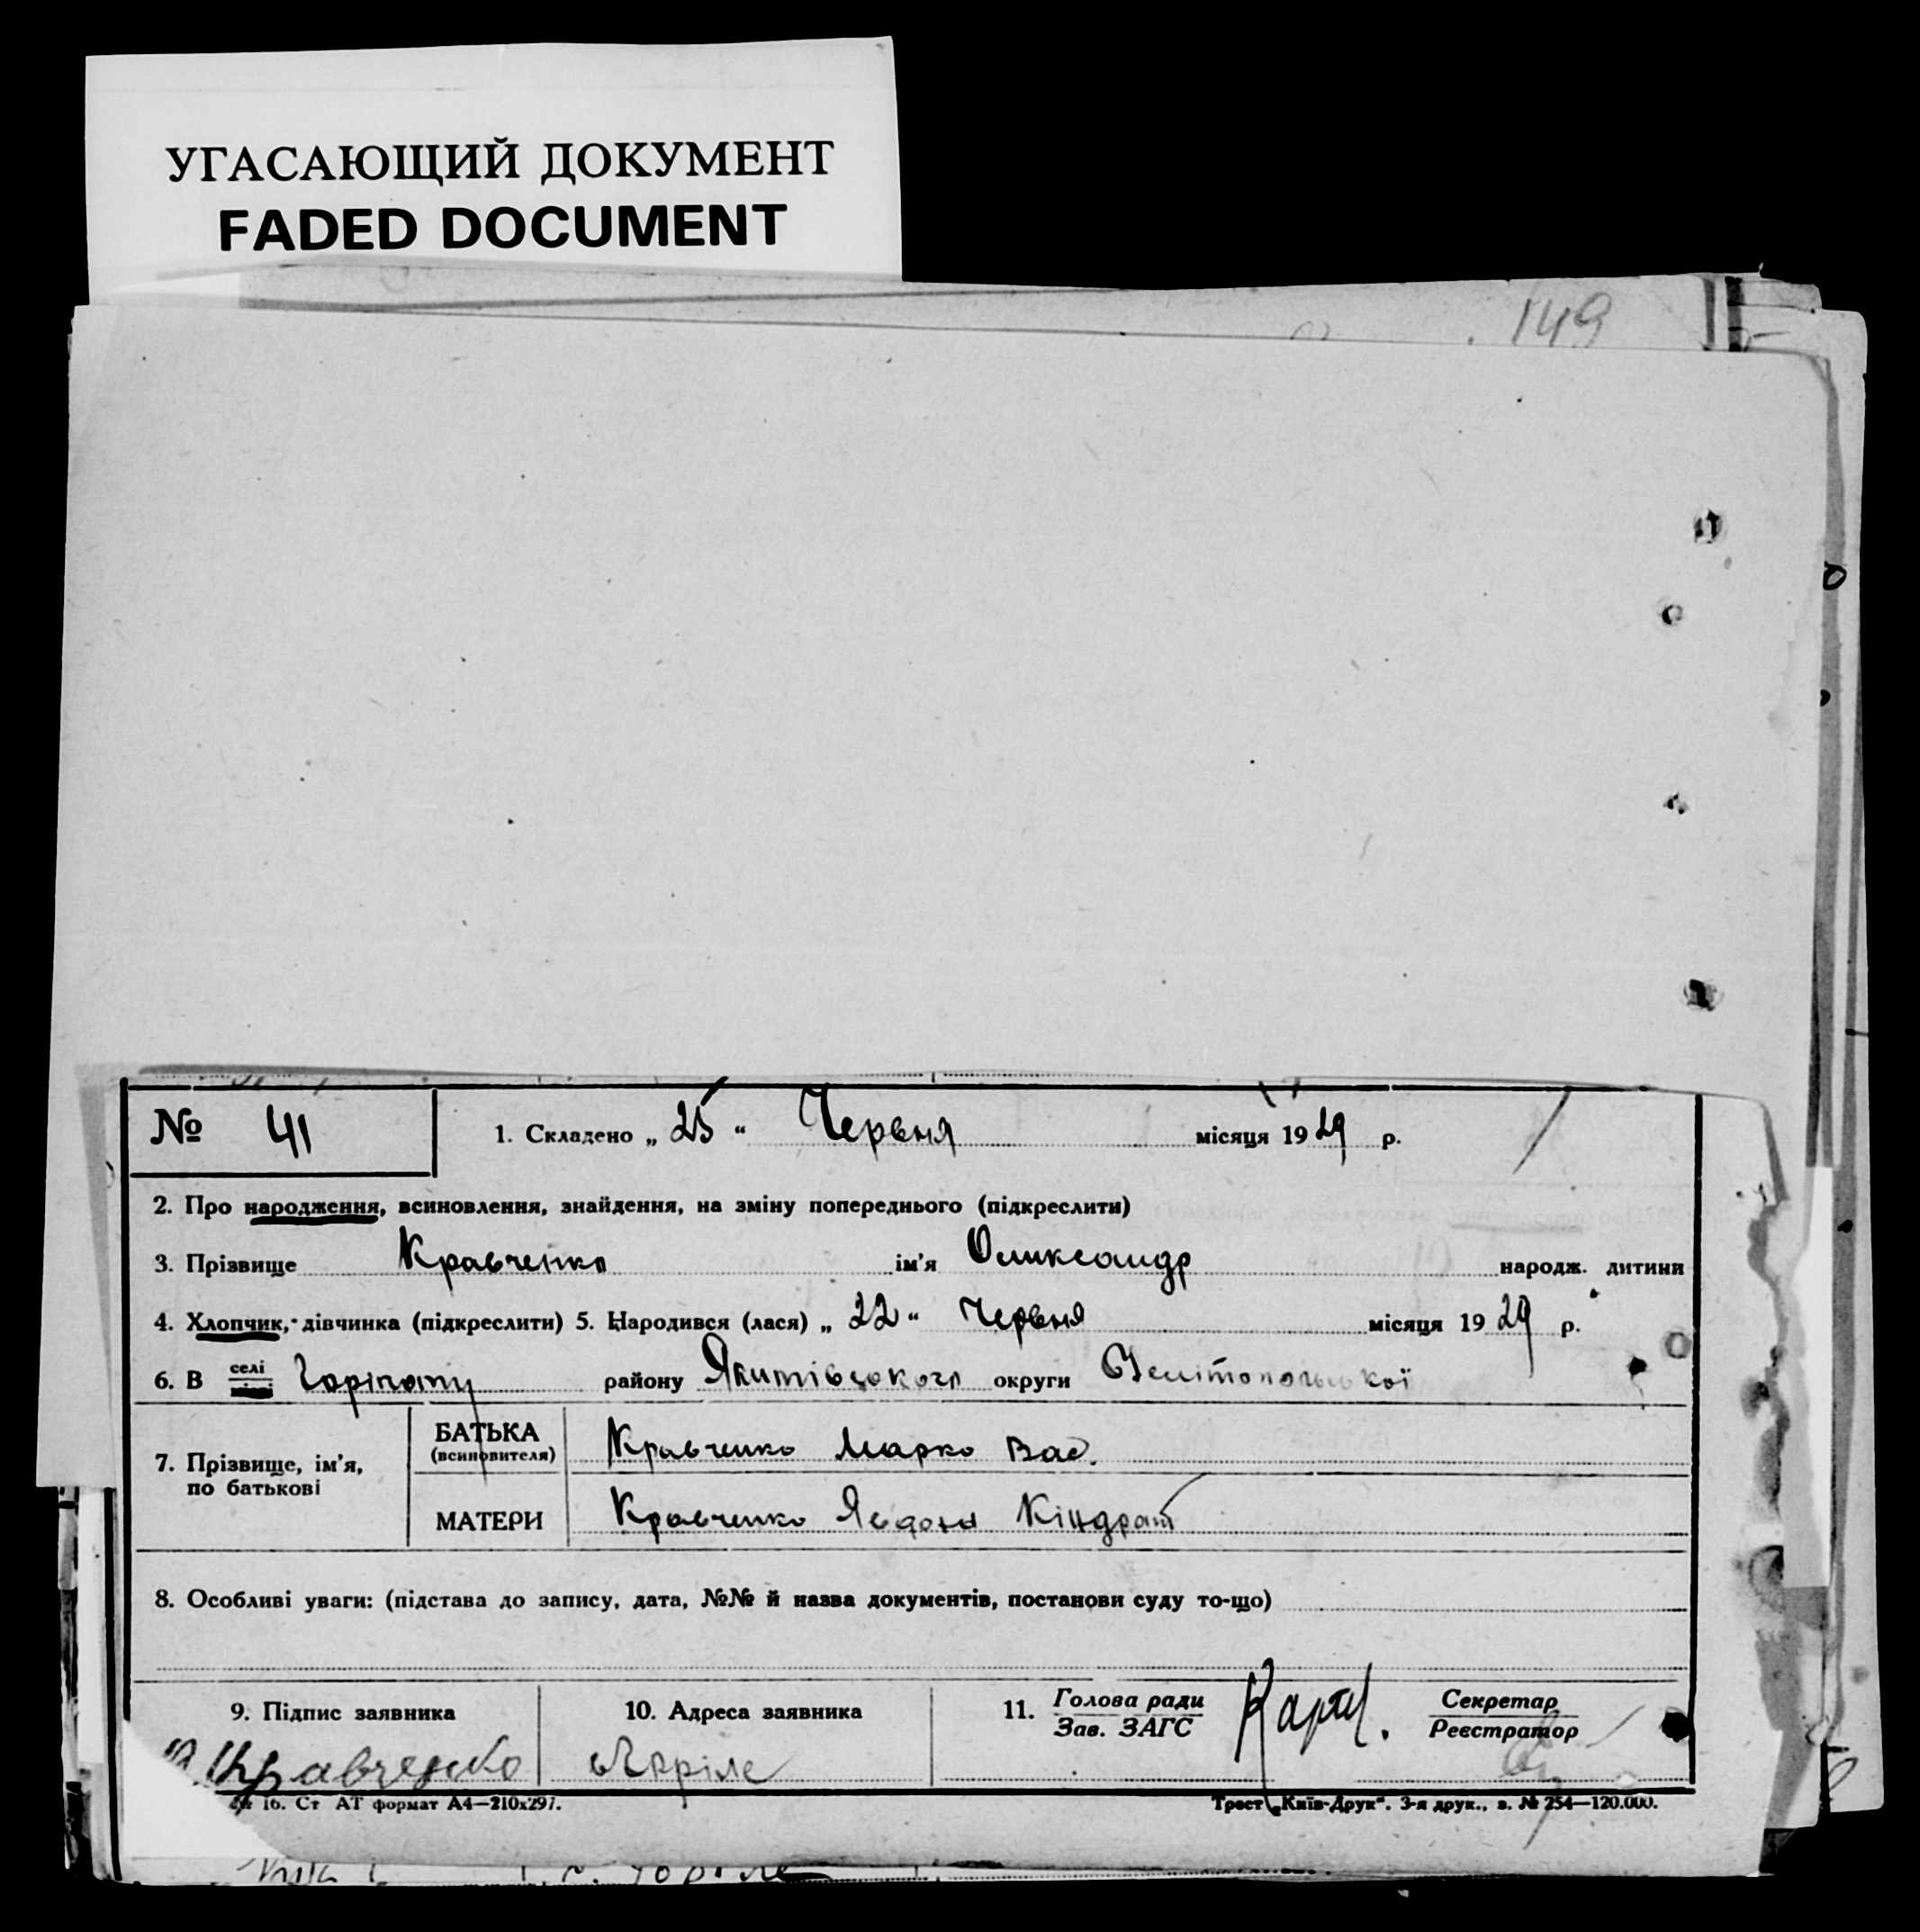 УГАСАЮЩИЙ ДОКУМЕНТ
FADED DOCUMENT
149
№ 41
1. Складено „ 25 “ Червня місяця 1929 р.
2. Про народження, всиновлення, знайдення, на зміну попереднього (підкреслити)
3. Прізвище Кравченко ім'я Олександр народж. дитини
4. Хлопчик, дівчинка (підкреслити) 5. Народився (лася) „ 22 “ Червня місяця 1929 р.
6. В селі району Якимівського округи Мелітопольської
7. Прізвище, ім'я, по батькові
БАТЬКА (всиновителя) Кравченко Марко Вас.
МАТЕРИ Кравченко Явдоха Кіндрат
8. Особливі уваги: (підстава до запису, дата, №№ й назва документів, постанови суду то-що)
9. Підпис заявника
10. Адреса заявника
11. Голова ради
Зав. ЗАГС
Секретар
Реєстратор
Кравченко
16. Ст АТ формат А4—210х297.
Трест „Київ-Друк“. 3-я друк., з. № 254—120.000.